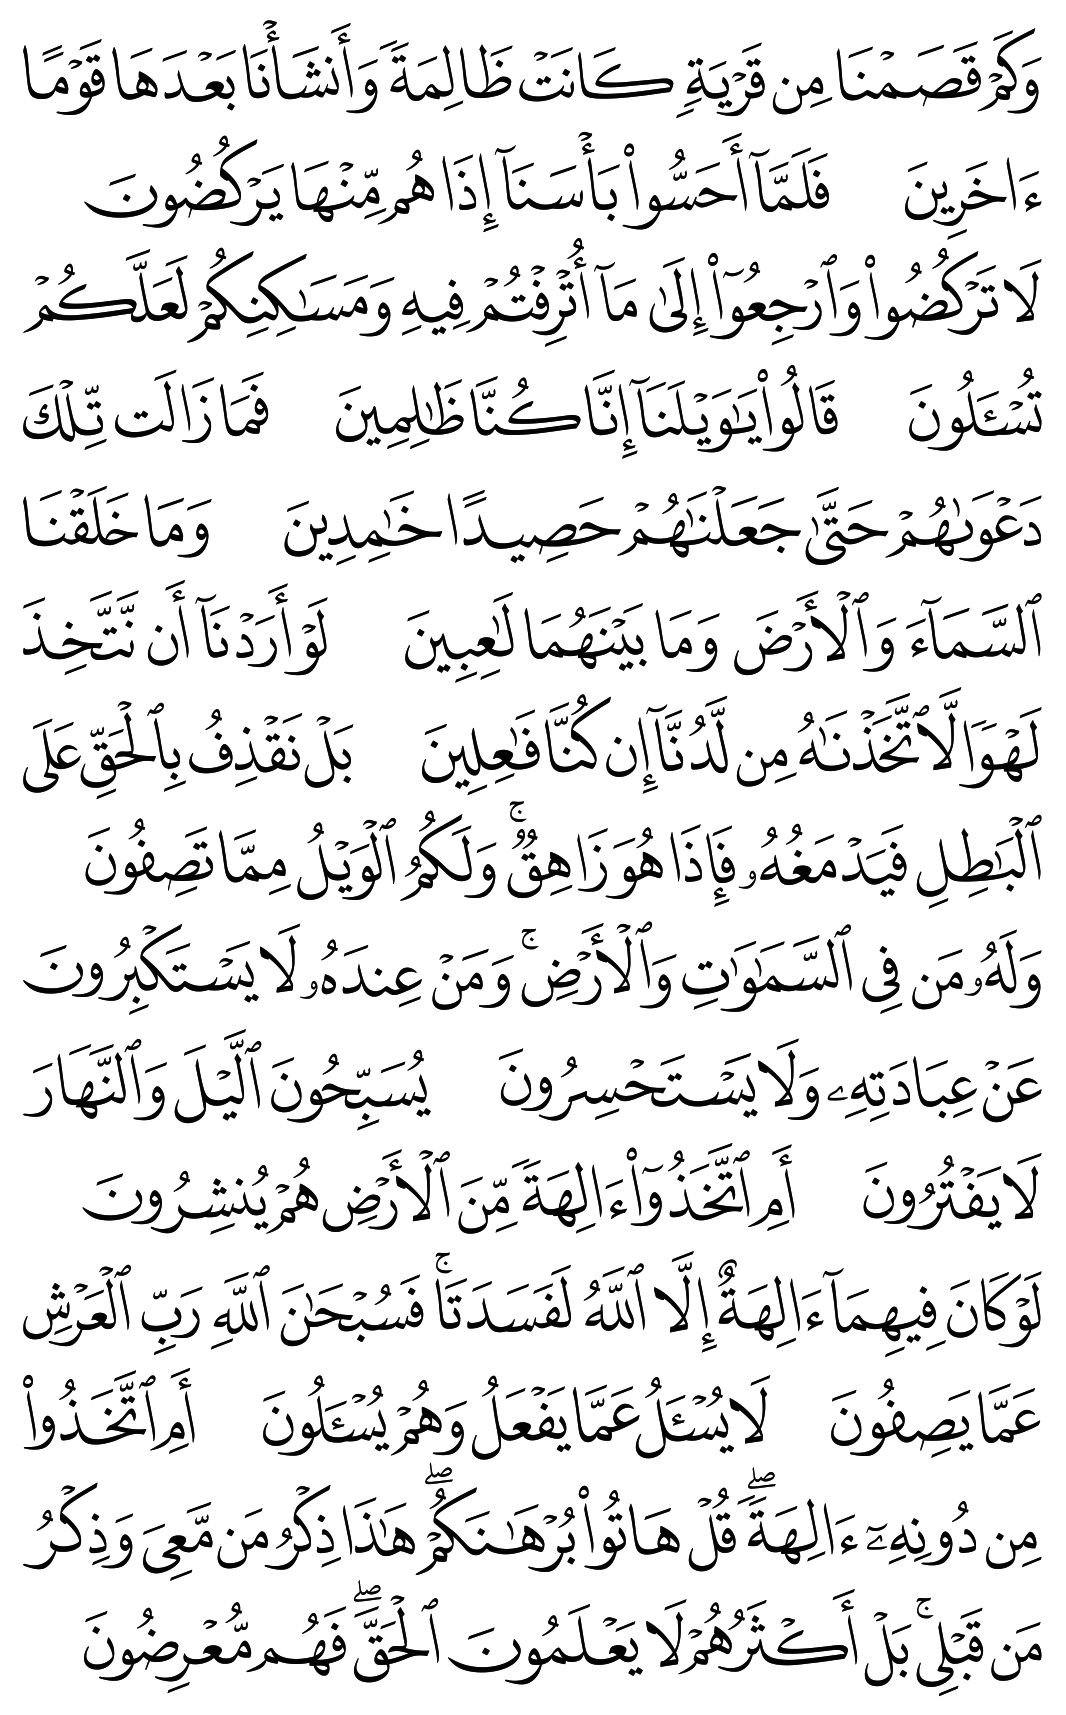 وَكَمْ قَصَمْنَا مِن قَرْيَةٍ كَانَتْ ظَالِمَةً وَأَنشَأْنَا بَعْدَهَا قَوْمًا
ءَاخَرِينَ فَلَمَّآ أَحَسُّوا۟ بَأْسَنَآ إِذَا هُم مِّنْهَا يَرْكُضُونَ
لَا تَرْكُضُوا۟ وَٱرْجِعُوٓا۟ إِلَىٰ مَآ أُتْرِفْتُمْ فِيهِ وَمَسَـٰكِنِكُمْ لَعَلَّكُمْ
تُسْـَٔلُونَ قَالُوا۟ يَـٰوَيْلَنَآ إِنَّا كُنَّا ظَـٰلِمِينَ فَمَا زَالَت تِّلْكَ
دَعْوَىٰهُمْ حَتَّىٰ جَعَلْنَـٰهُمْ حَصِيدًا خَـٰمِدِينَ وَمَا خَلَقْنَا
ٱلسَّمَآءَ وَٱلْأَرْضَ وَمَا بَيْنَهُمَا لَـٰعِبِينَ لَوْ أَرَدْنَآ أَن نَّتَّخِذَ
لَهْوًا لَّٱتَّخَذْنَـٰهُ مِن لَّدُنَّآ إِن كُنَّا فَـٰعِلِينَ بَلْ نَقْذِفُ بِٱلْحَقِّ عَلَى
ٱلْبَـٰطِلِ فَيَدْمَغُهُۥ فَإِذَا هُوَ زَاهِقٌ ۚ وَلَكُمُ ٱلْوَيْلُ مِمَّا تَصِفُونَ
وَلَهُۥ مَن فِى ٱلسَّمَـٰوَٰتِ وَٱلْأَرْضِ ۚ وَمَنْ عِندَهُۥ لَا يَسْتَكْبِرُونَ
عَنْ عِبَادَتِهِۦ وَلَا يَسْتَحْسِرُونَ يُسَبِّحُونَ ٱلَّيْلَ وَٱلنَّهَارَ
لَا يَفْتُرُونَ أَمِ ٱتَّخَذُوٓا۟ ءَالِهَةً مِّنَ ٱلْأَرْضِ هُمْ يُنشِرُونَ
لَوْ كَانَ فِيهِمَآ ءَالِهَةٌ إِلَّا ٱللَّهُ لَفَسَدَتَا ۚ فَسُبْحَـٰنَ ٱللَّهِ رَبِّ ٱلْعَرْشِ
عَمَّا يَصِفُونَ لَا يُسْـَٔلُ عَمَّا يَفْعَلُ وَهُمْ يُسْـَٔلُونَ أَمِ ٱتَّخَذُوا۟
مِن دُونِهِۦٓ ءَالِهَةً ۖ قُلْ هَاتُوا۟ بُرْهَـٰنَكُمْ ۖ هَـٰذَا ذِكْرُ مَن مَّعِىَ وَذِكْرُ
مَن قَبْلِى ۚ بَلْ أَكْثَرُهُمْ لَا يَعْلَمُونَ ٱلْحَقَّ ۖ فَهُم مُّعْرِضُونَ